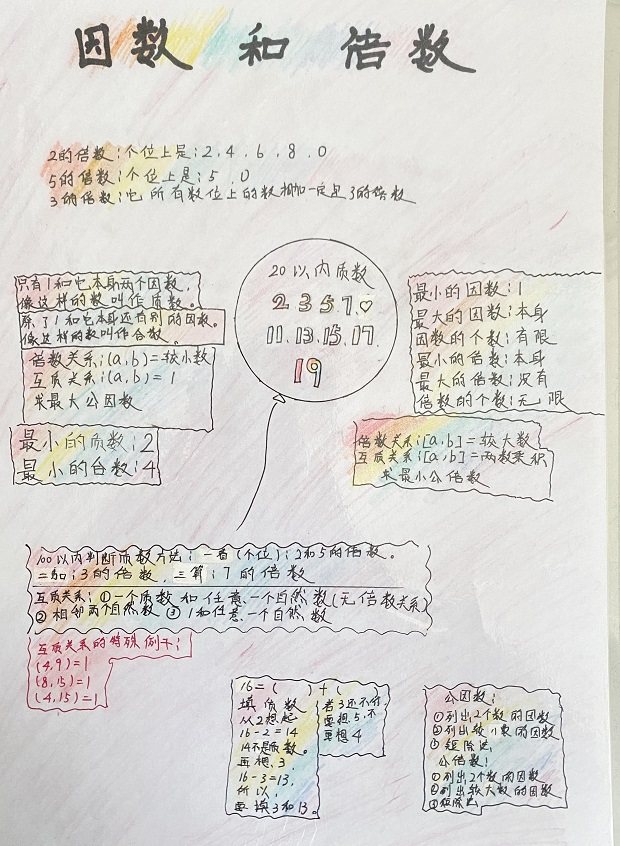 因数 和 倍数
2的倍数:个位上是:2,4,6,8,0
5的倍数:个位上是:5,0
3的倍数:它所有数位上的数相加一定是3的倍数
只有1和它本身两个因数,
像这样的数叫作质数。
除了1和它本身还有别的因数。
像这样的数叫作合数。
倍数关系:(a,b)=较小数
互质关系:(a,b)=1
求最大公因数
最小的质数:2
最小的合数:4
20以内质数
2 3 5 7.♡
11.13.15.17.
19
最小的因数:1
最大的因数:本身
因数的个数:有限
最小的倍数:本身
最大的倍数:没有
倍数的个数:无限
倍数关系:[a,b]=较大数
互质关系:[a,b]=两数乘积
求最小公倍数
100以内判断质数方法:一看(个位):2和5的倍数。
二加:3的倍数,三算:7的倍数
互质关系:①一个质数和任意一个自然数(无倍数关系)
②相邻两个自然数 ③1和任意一个自然数
互质关系的特殊例子:
(4,9)=1
(8,15)=1
(4,15)=1
16=( )+(
填质数
从2想起
16-2=14
14不是质数。
再想,3,
16-3=13,
所以,
要填3和13。
若3还不行,
要想5,不
要想4
公因数:
①列出2个数的因数
②列出较小数的因数
③短除法
公倍数:
①列出2个数的因数
②列出较大数的因数
③短除法